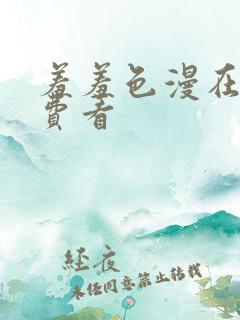 羞羞色漫在
费看
经夜
未经同意禁止转载